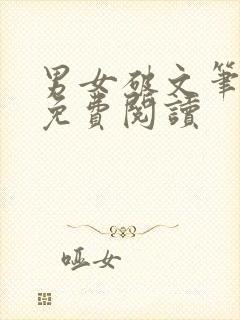 男女破文筆
免費閱讀
哑女